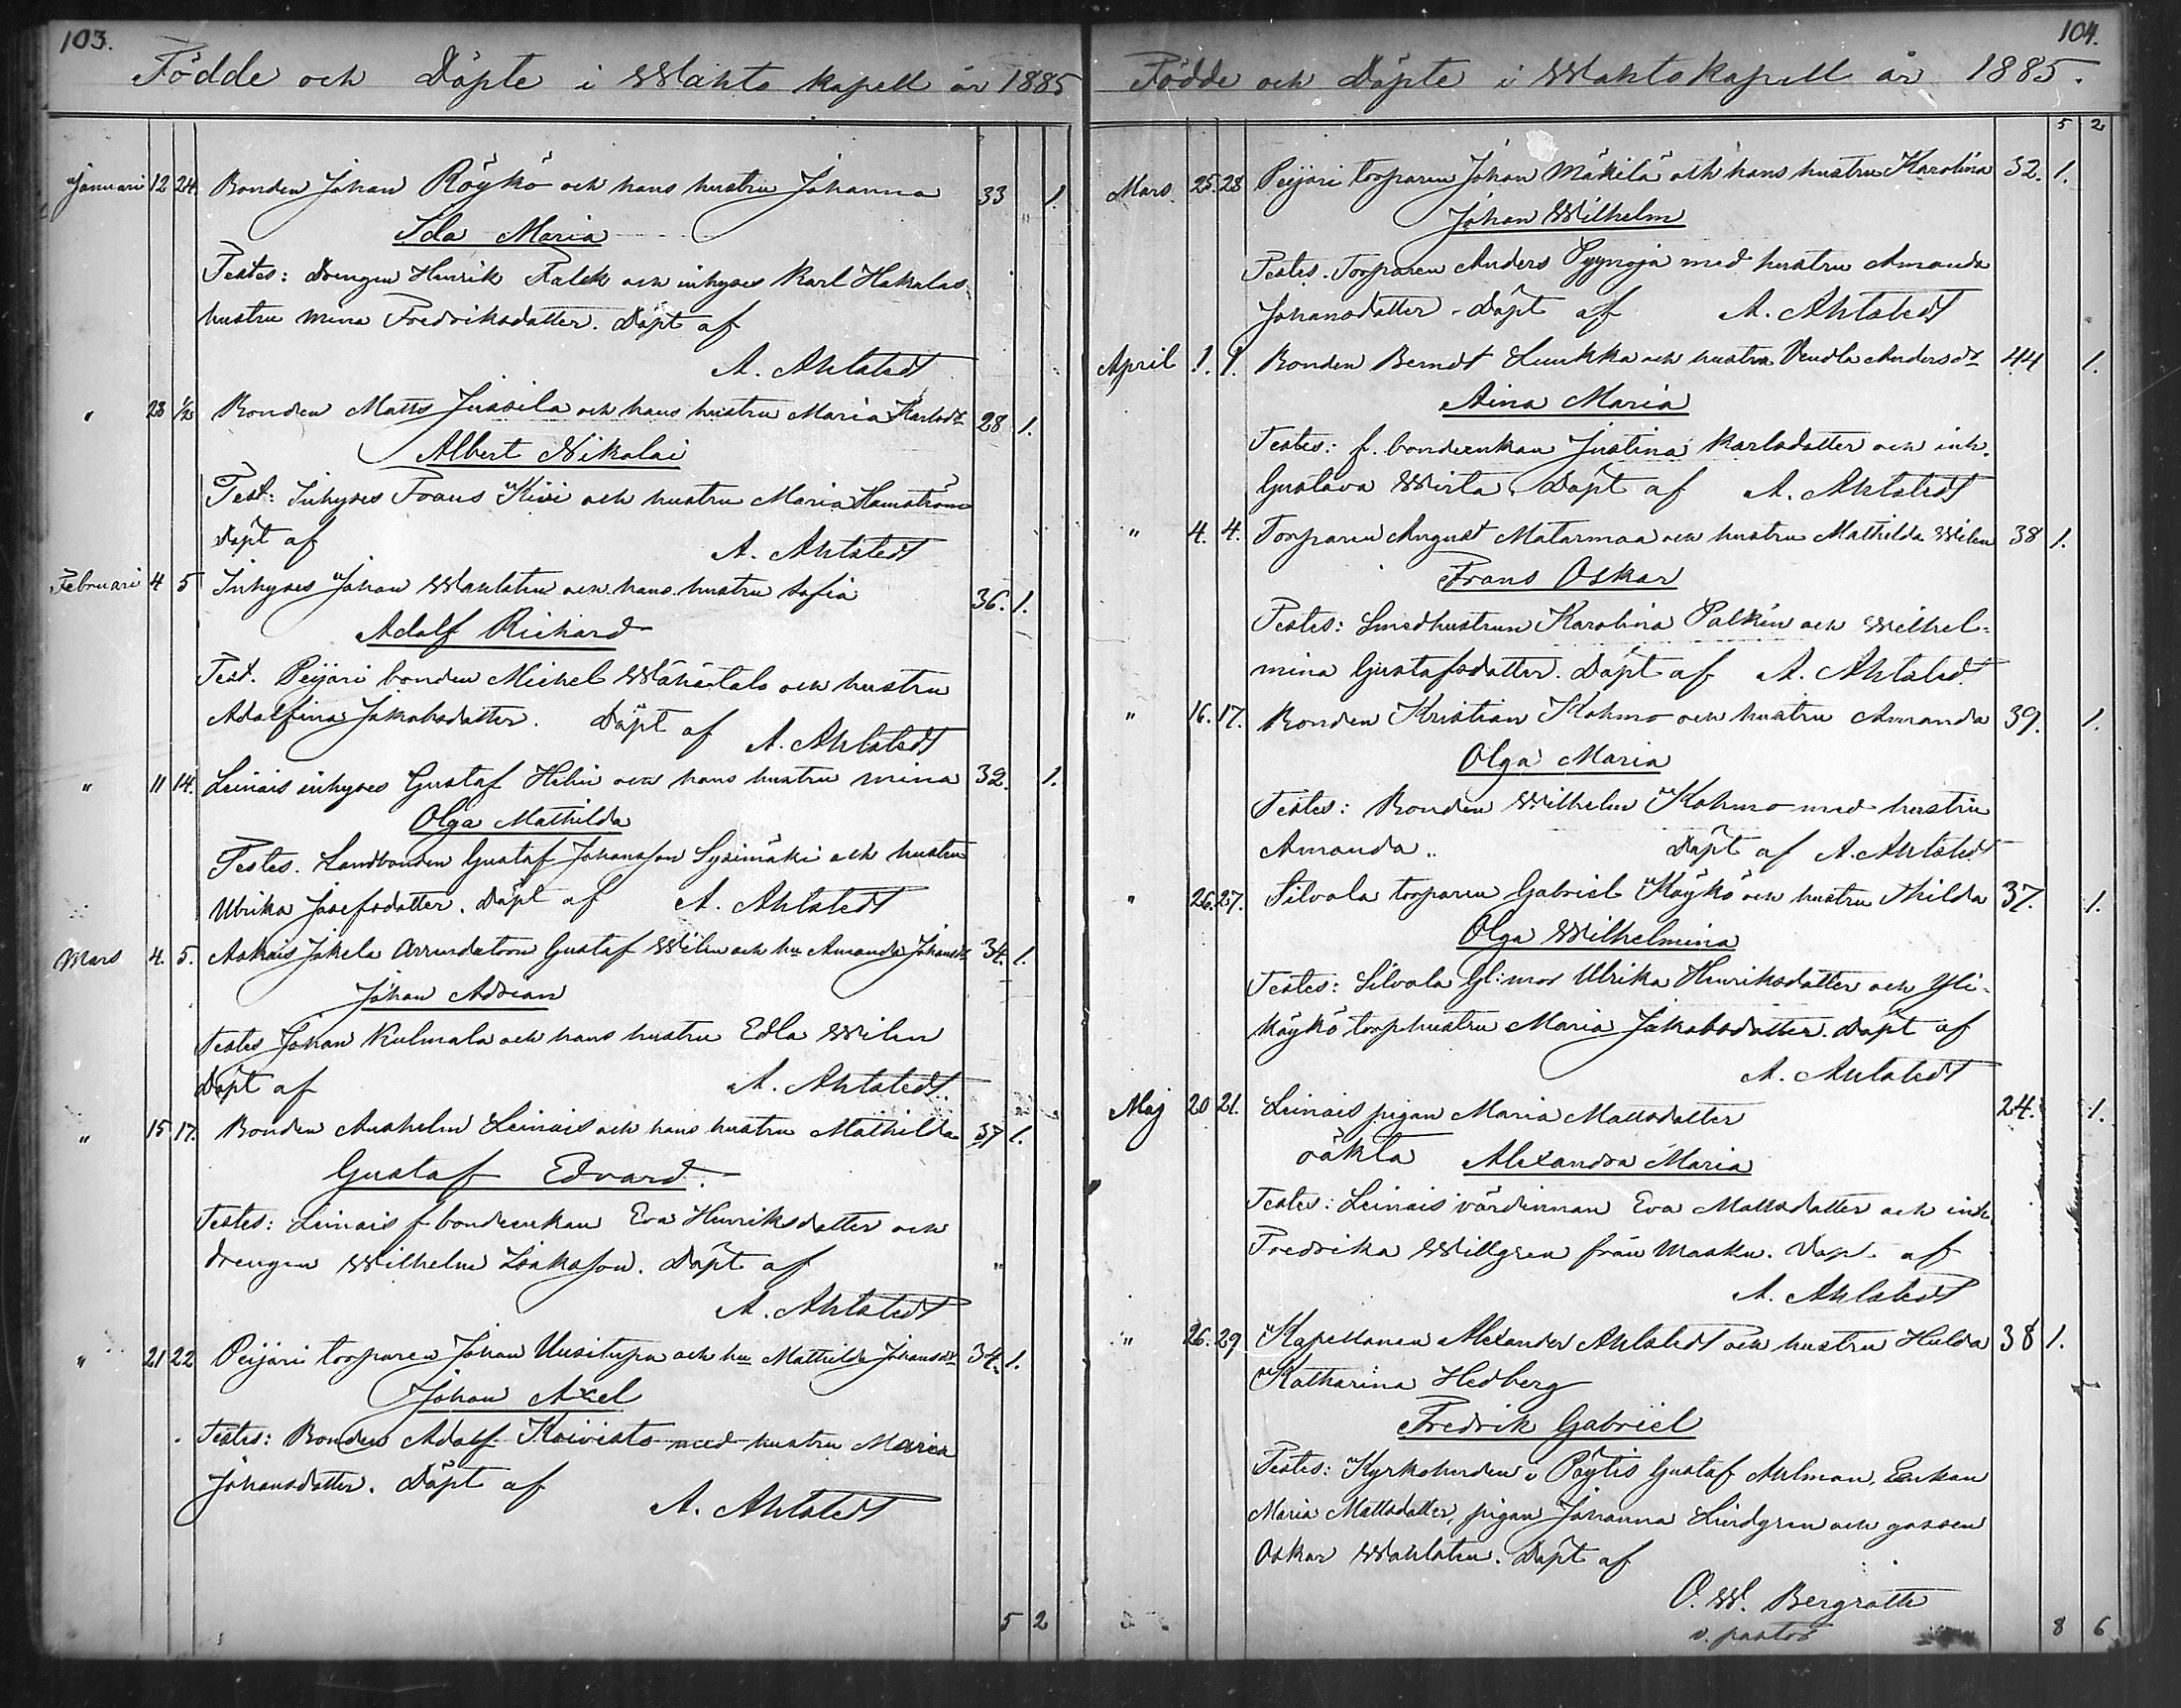 103.
Födde och Döpte i Wahto kapell år 1885
Januari 12 24. Bonden Johan Röykö och hans hustru Johanna 33 1.
Ida Maria
Testes: Drengen Henrik Falck och inhyses Karl Hakalas
hustru Mina Fredriksdatter. Döpt af
A. Ahlstedt
" 23 1/2 Bonden Matts Jussila och hans hustru Maria Karlsdr 28 1.
Albert Nikolai
Test: Inhyses Frans Kivi och hustru Maria Hamström
Döpt af A. Ahlstedt
Februari 4 5 Inhyses Johan Wahlsten och hans hustru Sofia 36. 1.
Adolf Richard
Test. Peijari bonden Michel Wähätalo och hustru
Adolfina Jakobsdatter. Döpt af A. Ahlstedt
" 11 14. Leinais inhyses Gustaf Helin och hans hustru Mina 32. 1.
Olga Mathilda
Testes. Landbonden Gustaf Johansson Sysimäki och hustru
Ulrika Josefsdatter. Döpt af A. Ahlstedt
Mars 4. 5. Askais Jokela Arrendatorn Gustaf Wilen och hu Amanda Johansdr 34. 1.
Johan Adrian
Testes Johan Kulmala och hans hustru Edla Wilen
Döpt af A. Ahlstedt.
" 15 17. Bonden Anshelm Leinais och hans hustru Mathilda 37 1.
Gustaf Edvard.
Testes: Leinais f. bondeenkan Eva Henriksdatter och
drengen Wilhelm Isaksson. Döpt af "
A. Ahlstedt
" 21 22 Peijari torparen Johan Uusitupa och hu Mathilda Johansdr 34. 1.
Johan Axel
Testes: Bonden Adolf Koivisto med hustru Maria
Johansdatter. Döpt af
A. Ahlstedt
5 2
104.
Födde och Döpte i Wahto kapell år 1885.
5 2
Mars. 25. 28 Peijari torparen Johan Mäkilä och hans hustru Karolina 32. 1.
Johan Wilhelm
Testes. Torparen Anders Pyynoja med hustru Amanda
Johansdatter. Döpt af A. Ahlstedt
April 1. 1. Bonden Berndt Luukka och hustru Vendla Andersdr 44 1.
Aina Maria
Testes: f. bondeenkan Justina Karlsdatter och inh.
Gustava Wirta. Döpt af A. Ahlstedt
" 4. 4. Torparen August Matarmaa och hustru Mathilda Wilen 38 1.
Frans Oskar
Testes: Smedhustrun Karolina Palkén och Wilhel-
mina Gustafsdatter. Döpt af A. Ahlstedt
" 16. 17. Bonden Kristian Kohmo och hustru Amanda 39. 1.
Olga Maria
Testes: Bonden Wilhelm Kohmo med hustru
Amanda.. Döpt af A. Ahlstedt
" 26. 27. Silvola torparen Gabriel Köykö och hustru Milda 37. 1.
Olga Wilhelmina
Testes: Silvola Gl:mor Ulrika Henriksdatter och Yli-
köykö torphustru Maria Jakobsdatter. Döpt af
A. Ahlstedt
Maj 20 21. Leinais pigan Maria Mattsdatter 24. 1.
oäkta Alexandra Maria
Testes: Leinais värdinnan Eva Mattsdatter och inh.
Fredrika Willgren från Masku. Döpt af
A. Ahlstedt
" 26. 29. Kapellanen Alexander Ahlstedt och hustru Hulda 38 1.
Katharina Hedberg
Fredrik Gabriel
Testes: Kyrkoherden i Pöytis Gustaf Ahlman, Enkan
Maria Mattsdatter, pigan Johanna Lindgren och gossen
Oskar Wahlsten. Döpt af
O. W. Bergroth
v. pastor
8 6